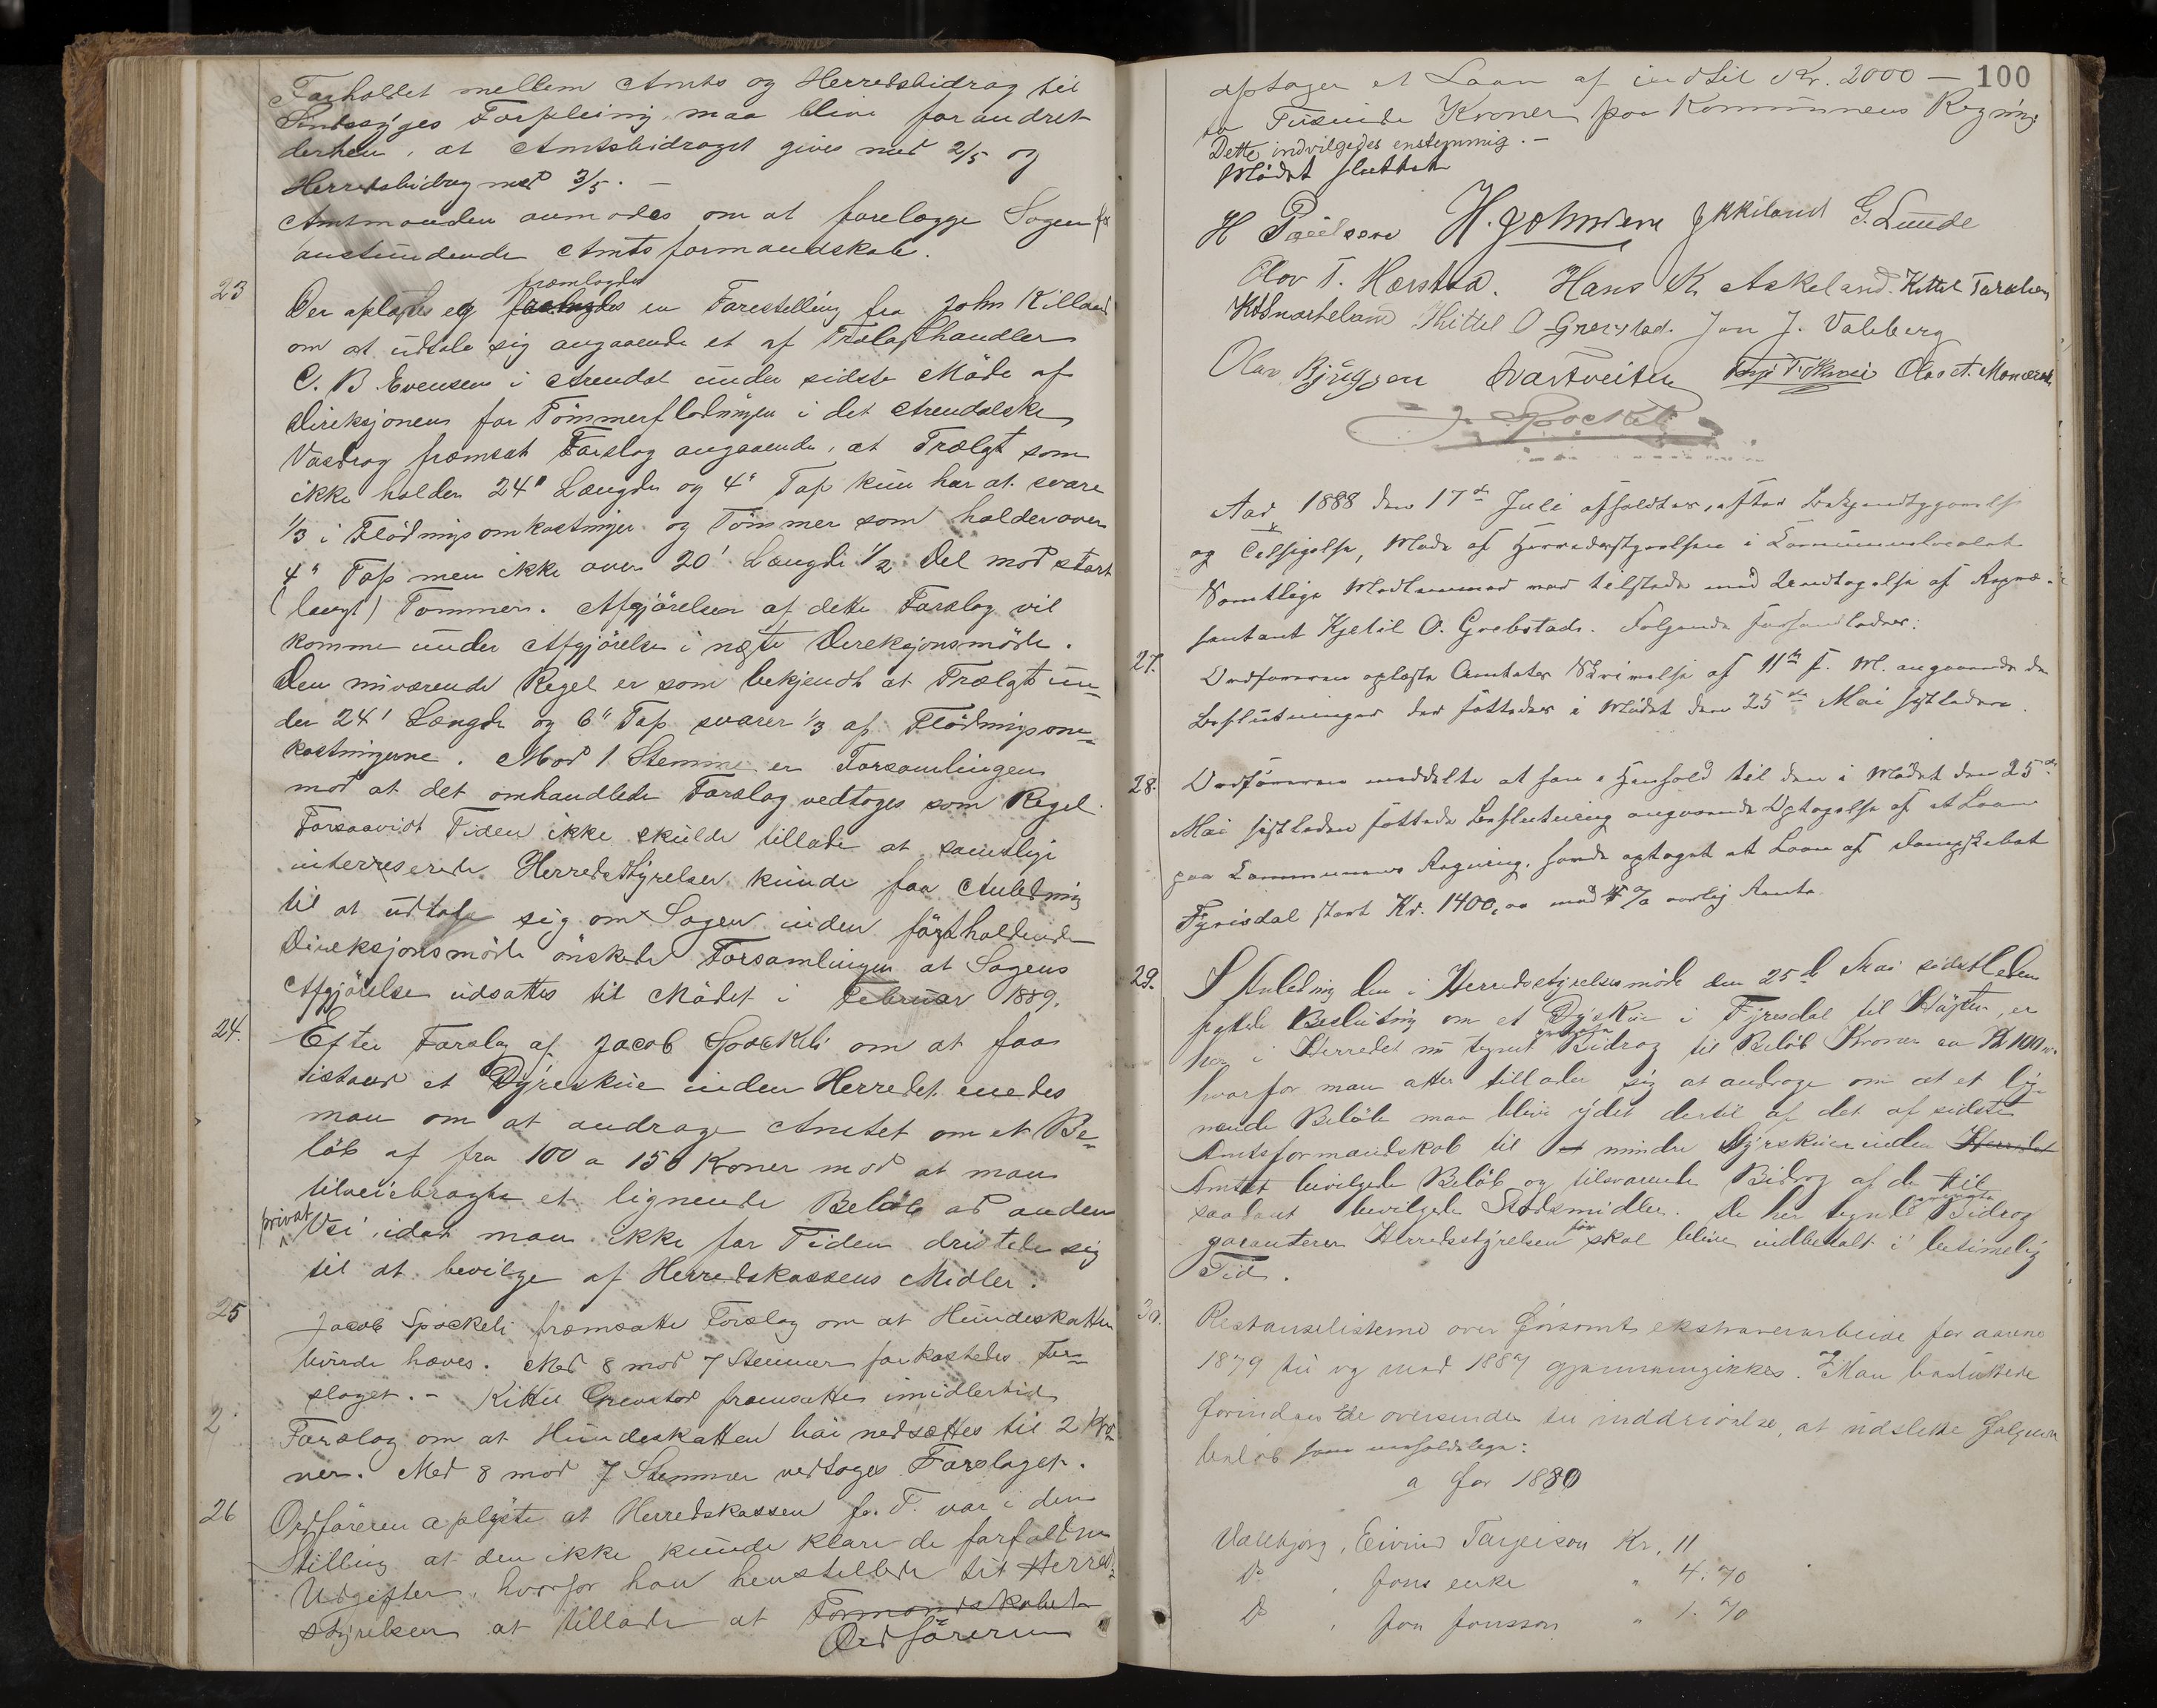 Forholdet mellem Amts og Herredsbidrag til
Sindssÿges Forpleining maa blive forandret
derhen, at Amtsbidraget gives med 2/5 og
Herredsbidrag med 3/5. —
Amtmanden anmodes om at forelægge Sagen for
anstundende Amtsformandskab.
fræmlagdes
23 Der oplæstes og en Forestilling fra John Killand
om at udtale sig angaaende et af Trælasthandler
C. B. Evensen i Arendal under sidste Møde af
Direksjonen for Tømmerflødningen i det Arendalske
Vasdrag fræmsat Forslag angaaende, at Trælast som
ikke holder 24" Længde og 4" Top kun har at svare
1/3 i Flødningsomkostninger og Tømmer som holder over
4" Top men ikke over 20' Længde 1/2 Del mod stort
(langt) Tømmer. Afgjørelsen af dette Forslag vil
komme under Afgjørelse i næste Direksjonsmøde.
Den nuværende Regel er som bekjendt at Trælast un-
der 24' Længde og 6" Top svarer 1/3 af Flødningsom-
kostningerne. Mod 1 Stemme er Forsamlingen
mod at det omhandlede Forslag vedtoges som Regel.
Forsaavidt Tiden ikke skulde tillade at samtlige
interreserede Herredsstyrelser kunde faa Anledning
til at udtale sig om Sagen inden førstholdende
Direksjonsmøde ønskede Forsamlingen at Sagens
Afgjørelse udsattes til Mødet i Februar 1889.
24. Efter Forslag af Jacob Spockeli om at faa
istand et Dÿreskue inden Herredet enedes
man om at andrage Amtet om et Be-
løb af fra 100 a 150 Kroner mod at man
tilveiebragte et lignende Beløb ad anden
privat Vei, idet man ikke for Tiden dristede sig
til at bevilge af Herredskassens Midler.
25 Jacob Spockeli fræmsatte Forslag om at Hundeskatten
burde hæves. Med 8 mod 7 Stemmer forkastedes For-
slaget. – Kittil Grevstad fræmsatte imidlertid
2 Forslag om at Hundeskatten her nedsættes til 2 Kro-
ner. Med 8 mod 7 Stemmer vedtoges Forslaget.
26 Ordføreren oplyste at Herredskassen f. T. var i den
Stilling at den ikke kunde klare de forfaldne
Udgifter, hvorfor han henstillede til Herred-
styrelsen at tillade at Formandskabet
Ordføreren
100
optager et Laan af indtil Kr. 2000 —
to Tusinde Kroner paa Kommunens Regning.
Dette indvilgedes enstemmig. –
Mødet sluttet
H Paulsen H. Johnsen J Kkiland G. Lunde
Olov T. Hærstad. Hans K. Askeland. Kittel Taraldsen
Kittel O Grevstad. Jon J. Valeberg
Olav Bjuggsen Svartveiten
J. Spockeli
Aar 1888 den 17de Juli afholdtes, efter Bekjendtgjørelse
og Tilsigelse, Møde af Herredsstyrelsen i Kommunelocalet
Samtlige Medlemmer var tilstede med Undtagelse af Repræ-
sentant Kjetil O. Grebstad. Følgende forhandledes:
27. Ordføreren oplæste Amtets Skrivelse af 11te f. M. angaaende de
Beslutninger der fattedes i Mødet den 25de Mai sistleden.
28. Ordføreren meddelte at han i Henhold til den i Mødet den 25de
Mai sistleden fattede Beslutning angaaende Optagelse af et Laan
paa Kommunens Regning, havde optaget et Laan af Dampskibet
Fyrisdal stort Kr. 1400,00 mod 4 % aarlig Rente
29. I Anledning den i Herredsstyrelsesmøde den 25de Mai sidstleden
fattede Beslutning om et Dÿrskue i Fyresdal til Høsten, er
her i Herredet nu tegnet private Bidrag til Beløb Kroner ca 100 Kr.
hvorfor man atter tillader sig at andrage om at et lig-
nende Beløb maa blive ÿdet dertil af det af sidste
Amtsformandskab til mindre Dÿrskuer inden Herredet
Amtet bevilgede Beløb og tilsvarende Bidrag af de til
saadant bevilgede Stadsmidler. De her tegnede private Bidrag
garanterer Herredsstÿrelsen for skal blive indbetalt i betimelig
Tid.
30. Restanselisterne over forsømt ekstraveiarbeide for aarene
1879 til og med 1887 gjennemgikkes. Og Man besluttede
forinden de oversendes til inddrivelse, at udslette følgende
beløb som uerholdelige:
a for 1880
Valebjørg, Eivind Targeison Kr. 11
Do , Jons enke " 4.70
Do , Jon Jonsson " 1.70